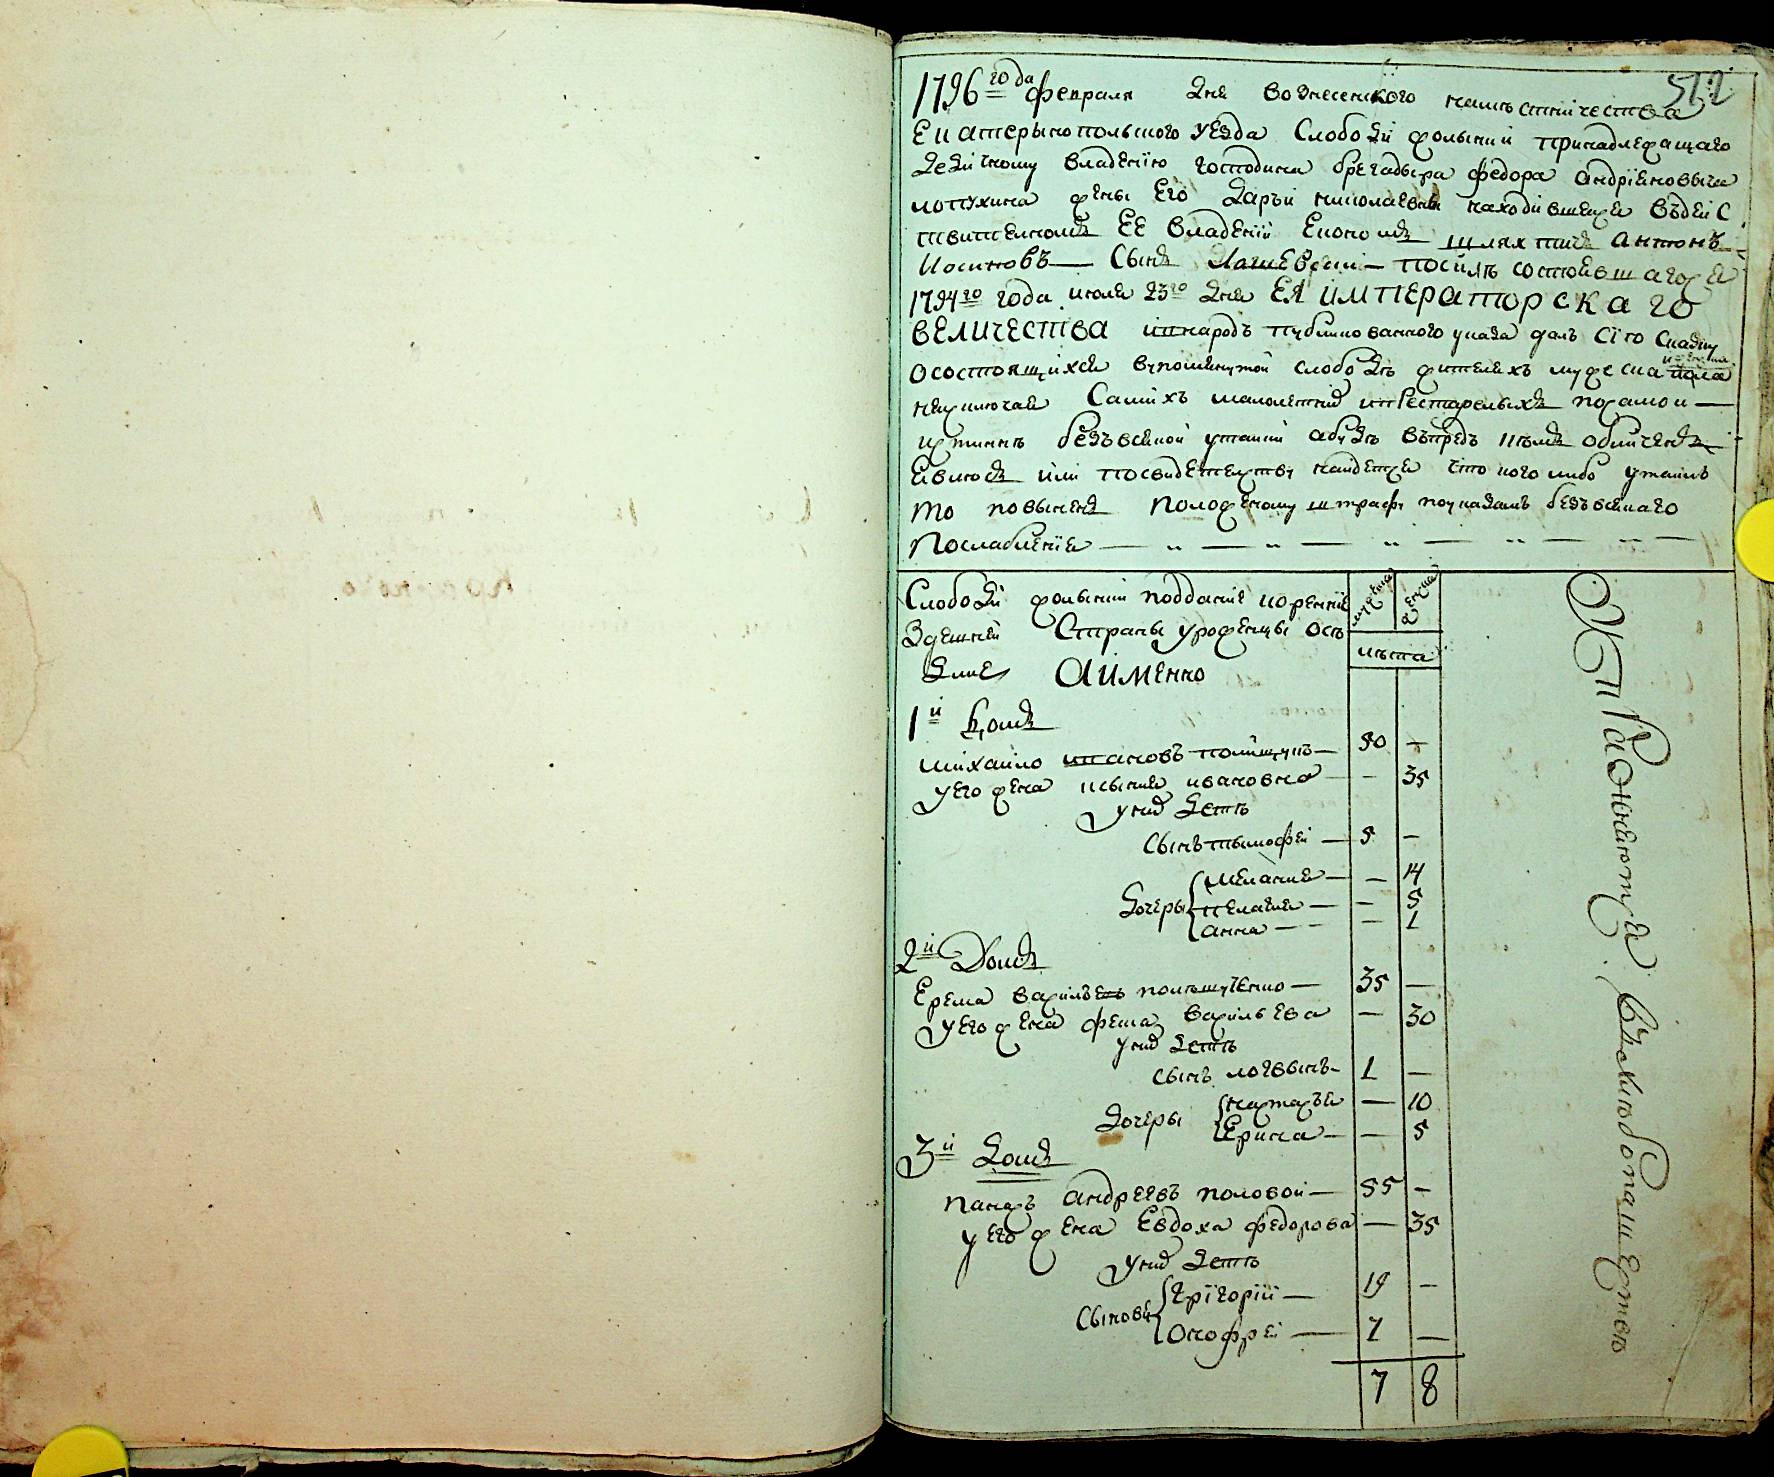 572
1796 года февраля дня вознесенского наместничества
Екатерынопольского уезда Слободы жолынки принадлежащаго
дедичному владению господина брегадыра федора андриеновыча
лопухина жены его Дарьи николаевны находившейся въдейс
твителном ее владении економ шляхтич антонъ
Иосиновъ сынъ посилъ состоявшагося
1794го года июля 23го дня ЕЯ ИМПЕРАТОРСКАГО
ВЕЛИЧЕСТВА внародъ публикованного указа далъ сию скаску
осостоящихся вупомянутой слободе жителехъ мужеска пола
иженска
неисключая самихъ малолетних ипрестарелыхъ посамой
истинне безъвсякой утайки абуде въпредь кемъ обличенъ
явлюсь или посвидетелству найдется что кого либо утаилъ
то повиненъ положеному штрафу поуказамъ безъвсякаго
Послабления
Слободы жолынки подданые коренные
Здешней Страны уроженцы осе
длие АИМЕННО
мужеска женска
лета
1й Домъ
михайло ивановъ полищукъ 50 —
унего жена ивановна — 35
уних дети
сынъ тымофей 5 —
дочеры мелания — 14
пелагия — 5
анна — 1
2й Домъ
Ерема василевъ полищученко 35 —
унего жена феша васильева — 30
уних дети
сынъ логвынъ 1 —
дочеры настасья — 10
Ерина — 5
3й Домъ
панасъ андреевъ половой 55 —
унего жена Евдоха федорова — 35
уних дети
сыновя григорий 19 —
Онофрей 7 —
7 8
упражняются въ хлебопашестве